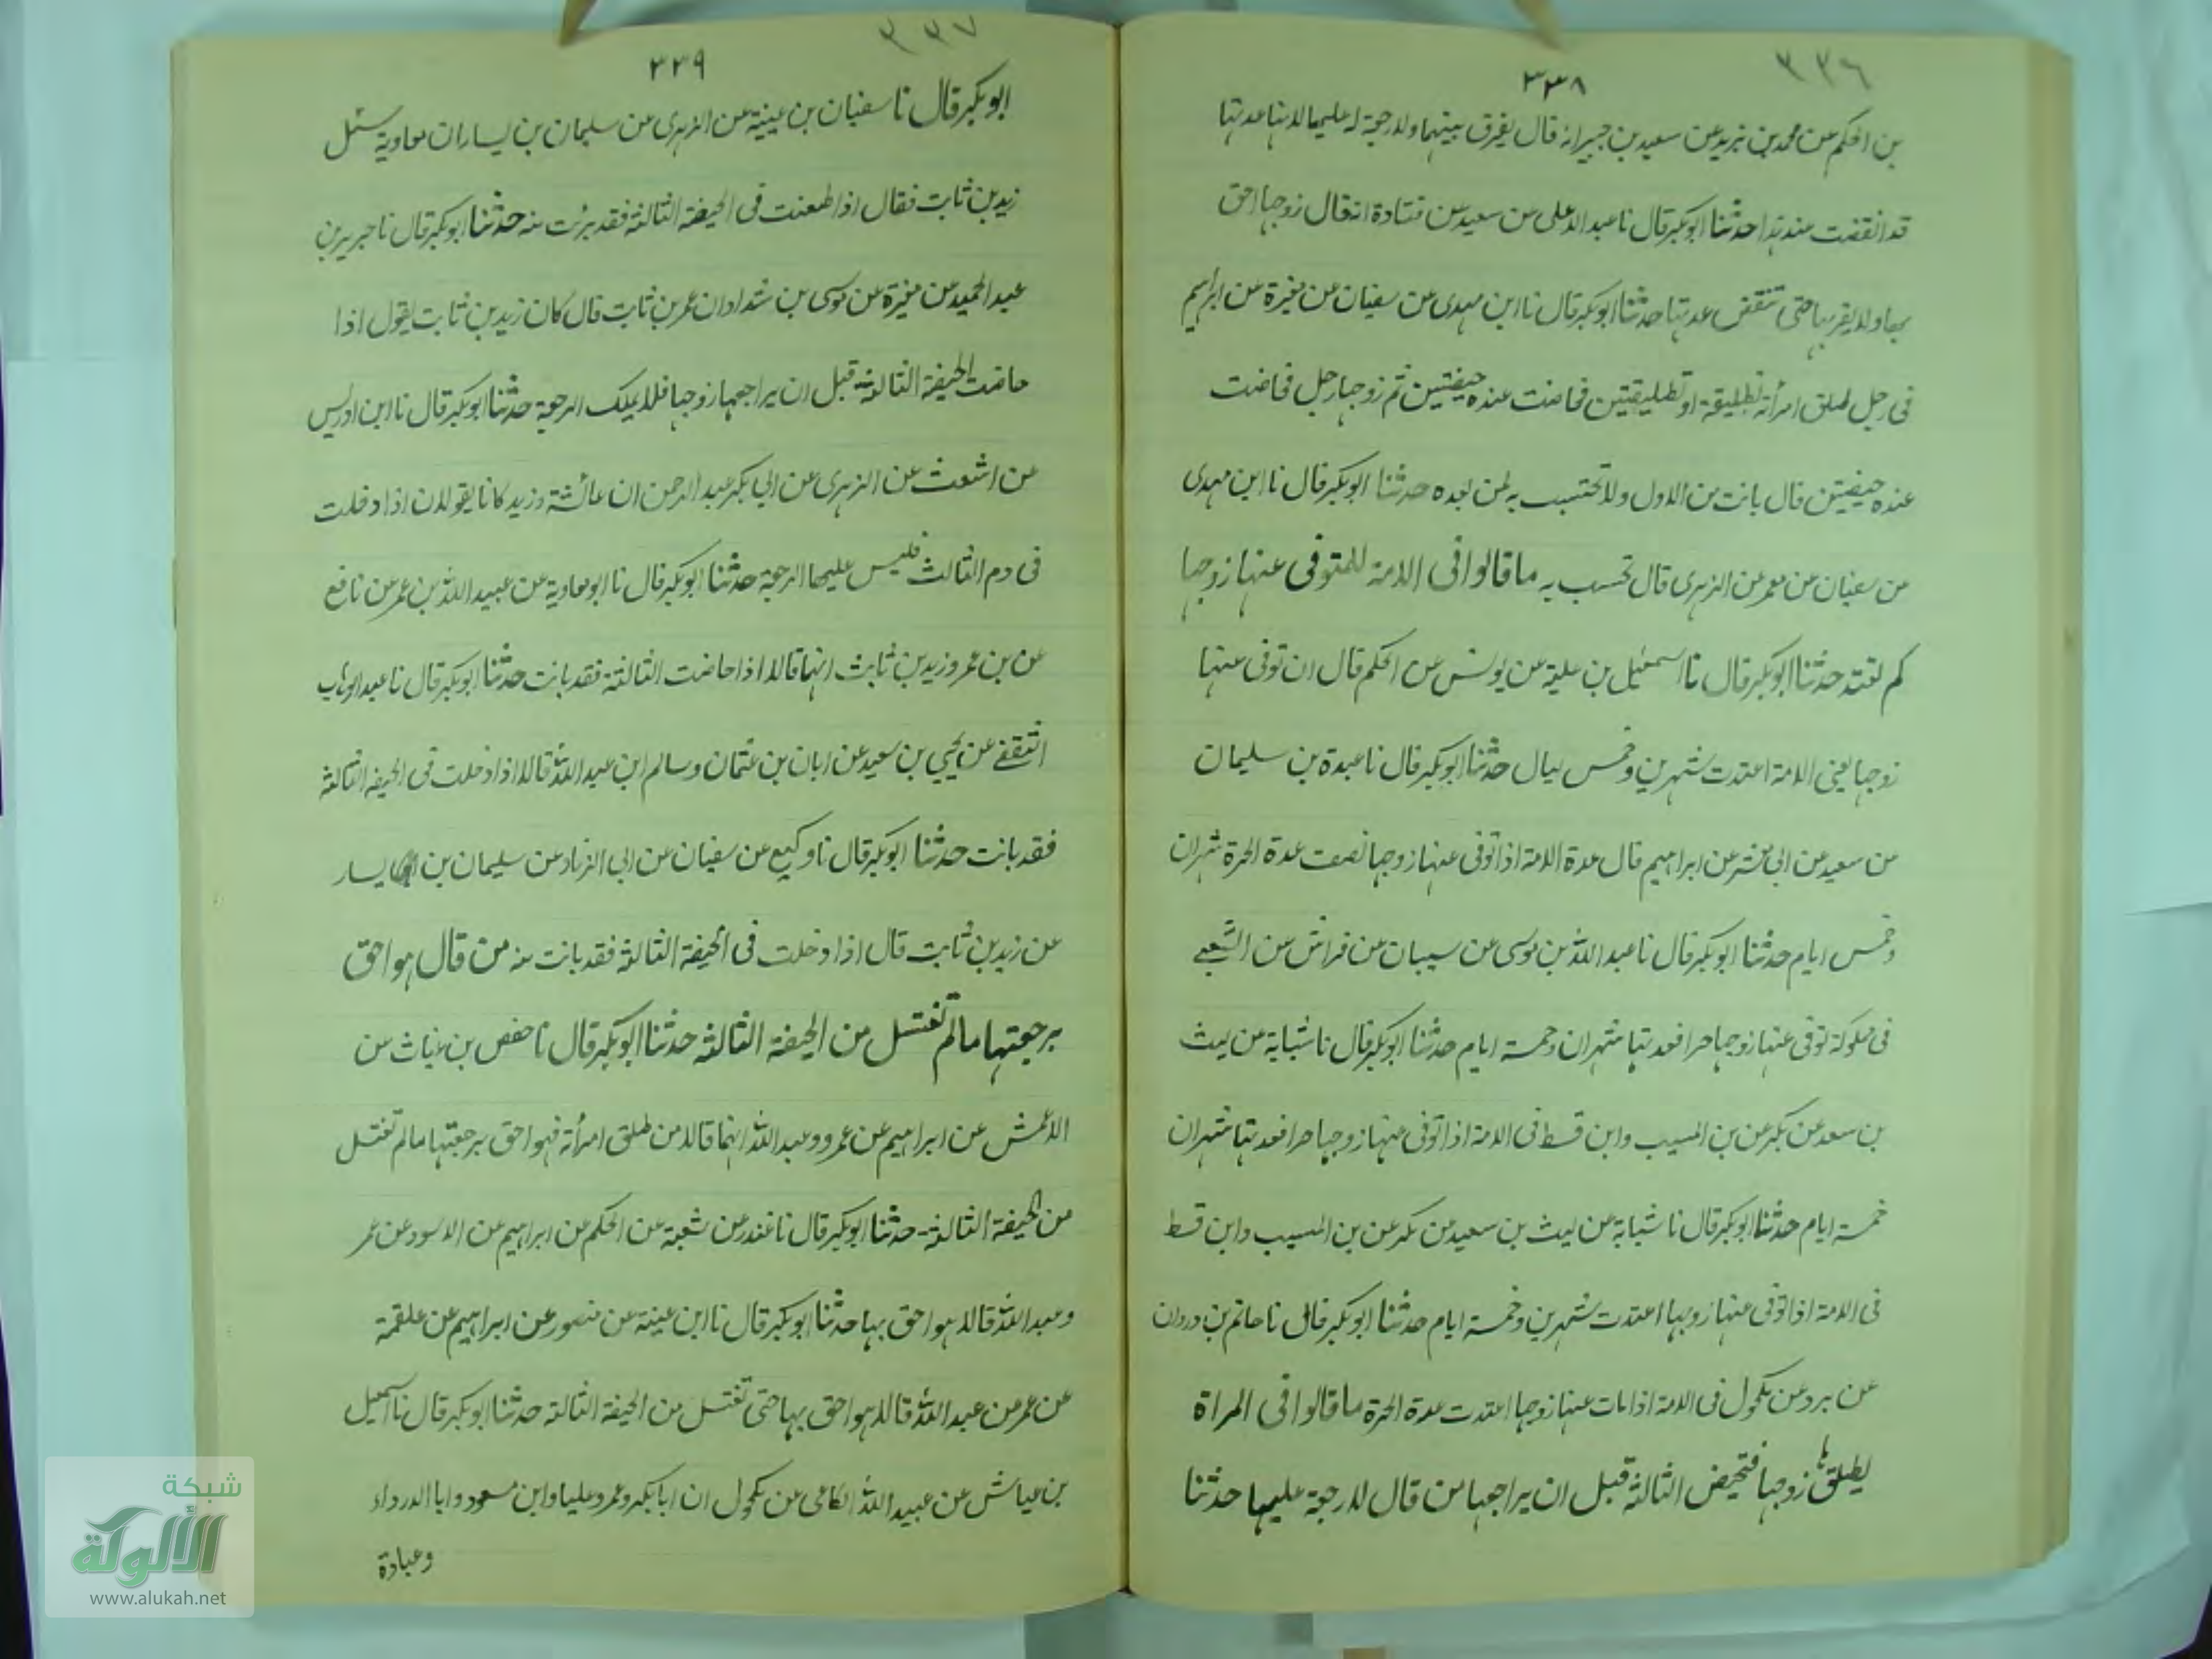 ٣٣٦
٣٣٨
بن الحكم عن محمد بن يزيد عن سعيد بن جبير انه قال يفرق بينهما ولا رجعة له عليها لانها عدتها
قد انقضت من هذا حدثنا ابوبكر قال نا عبد الاعلى عن سعيد عن قتادة انه قال زوجها احق
بها ولا يقربها حتى تنقض عدتها حدثنا ابوبكر قال نا ابن مهدى عن سفيان عن مغيرة عن ابراهيم
فى رجل طلق امرأته تطليقة او تطليقتين فحاضت عنده حيضتين ثم زوجها رجل فحاضت
عنده حيضتين قال بانت من الاول ولا تحتسب به لمن بعده حدثنا ابوبكر قال نا ابن مهدى
عن سفيان عن معمر عن الزهرى قال تحتسب به ما قالوا فى الامة للمتوفى عنها زوجها
كم تعتد حدثنا ابوبكر قال نا اسمعيل بن علية عن يونس عن الحكم قال ان توفى عنها
زوجها يعنى الامة اعتدت شهرين وخمس ليال حدثنا ابوبكر قال نا عبدة بن سليمان
عن سعيد عن ابى معشر عن ابراهيم قال عدة الامة اذا توفى عنها زوجها نصف عدة الحرة شهران
وخمس ايام حدثنا ابوبكر قال نا عبد الله بن موسى عن سيبان عن فراش عن الشعبى
فى مملوكة توفى عنها زوجها حر افعدتها شهران وخمسة ايام حدثنا ابوبكر قال نا شبابة عن ليث
بن سعد عن بكر عن بن المسيب وابن قسط فى الامة اذا توفى عنها زوجها حر افعدتها شهران
خمسة ايام حدثنا ابوبكر قال نا شبابة عن ليث بن سعيد عن بكر عن بن المسيب وابن قسط
فى الامة اذا توفى عنها زوجها اعتدت شهرين وخمسة ايام حدثنا ابوبكر قال نا حاتم بن وردان
عن برد عن مكحول فى الامة اذا مات عنها زوجها اعتدت عدة الحرة ما قالوا فى المراة
يطلقها زوجها فتحيض الثالثة قبل ان يراجعها من قال لا رجعة عليها حدثنا
٣٣٧
٣٣٩
ابوبكر قال نا سفيان بن عيينة عن الزهرى عن سليمان بن يسار ان معاوية سئل
زيد بن ثابت فقال اذا طعنت فى الحيضة الثالثة فقد برئت منه حدثنا ابوبكر قال نا جرير بن
عبد الحميد عن مغيرة عن موسى بن شداد ان عمر بن ثابت قال كان زيد بن ثابت يقول اذا
حاضت الحيضة الثالثة قبل ان يراجعها زوجها فلا يملك الرجعة حدثنا ابوبكر قال نا ابن ادريس
عن اشعث عن الزهرى عن ابى بكر عبد الرحمن ان عائشة وزيد كانا يقولان اذا دخلت
فى دم الثالث فليس عليها الرجعة حدثنا ابوبكر قال نا ابو معاوية عن عبيد الله بن عمر عن نافع
عن بن عمر وزيد بن ثابت انهما قالا اذا حاضت الثالثة فقد بانت حدثنا ابوبكر قال نا عبد الوهاب
الثقفى عن يحيى بن سعيد عن ابان بن عثمان وسالم ابن عبد الله قالا اذا دخلت فى الحيضه الثالثة
فقد بانت حدثنا ابوبكر قال نا وكيع عن سفيان عن ابى الزناد عن سليمان بن يسار
عن زيد بن ثابت قال اذا دخلت فى الحيضة الثالثة فقد بانت منه من قال هو احق
برجعتها ما لم تغتسل من الحيضه الثالثه حدثنا ابوبكر قال نا حفص بن غياث عن
الاعمش عن ابراهيم عن عمر وعبد الله انهما قالا من طلق امرأته فهو احق برجعتها ما لم تغتسل
من الحيضة الثالثة - حدثنا ابوبكر قال نا غندر عن شعبة عن الحكم عن ابراهيم عن الاسود عن عمر
وعبد الله قالا هو احق بها حدثنا ابوبكر قال نا ابن عيينة عن منصور عن ابراهيم عن علقمة
عن عمر عن عبد الله قالا هو احق بها حتى تغتسل من الحيضة الثالثة حدثنا ابوبكر قال نا اسمعيل
بن عياش عن عبيد الله الكلاعى عن مكحول ان ابابكر وعمر وعليا وابن مسعود وابا الدرداء
وعبادة
شبكة
الألوكة
www.alukah.net